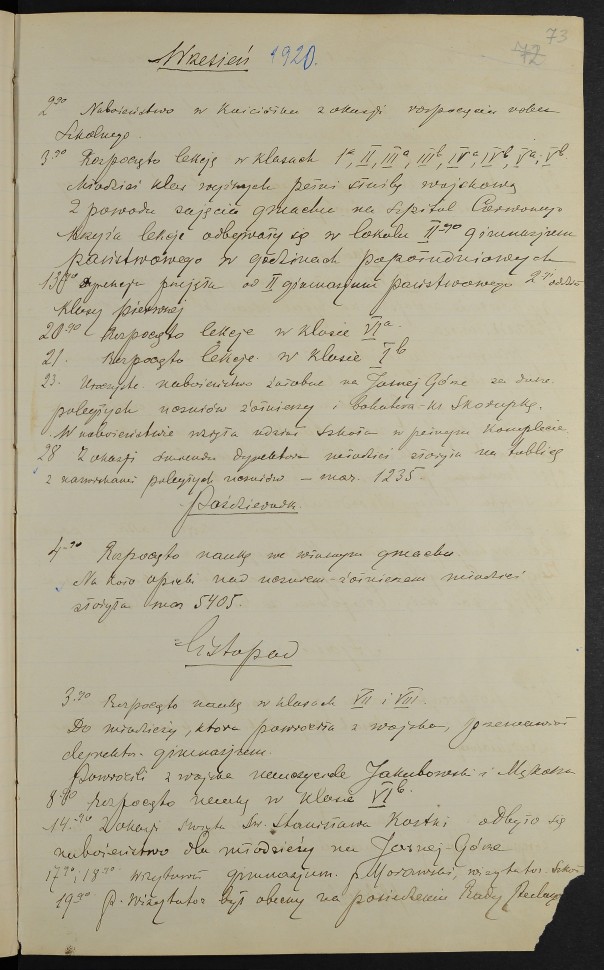 73
72
Wrzesień 1920.
2go Nabożeństwo w Kościółku z okazji rozpoczęcia roku
Szkolnego.
3.go Rozpoczęto lekcje w klasach 1a, II, IIIa, IIIb, IVa, IVb, Va, Vb
Młodzież klas wyższych pełni służbę wojskową
Z powodu zajęcia gmachu na Szpital Czerwonego
Krzyża lekcje odbywały się w lokalu II-go gimnazjum
państwowego w godzinach popołudniowych
13go Dyrekcja przyjęła od II gimnazjum państwowego 2
klasy pierwszej
20.go Rozpoczęto lekcje w klasie VIa.
21. Rozpoczęto lekcje w klasie Ib
23. Uroczyste nabożeństwo żałobne na Jasnej Górze za dusze
poległych uczniów żołnierzy i bohatera ks Skorupkę.
W nabożeństwie wzięła udział szkoła w pełnym komplecie
28 Z okazji imienin dyrektora młodzież złożyła na tablicę
z nazwiskami poległych uczniów – mar. 1235.
Październik
4-go Rozpoczęto naukę we własnym gmachu.
Na Koło opieki nad uczniem-żołnierzem młodzież
złożyła mar 5405.
Listopad
3.go Rozpoczęto naukę w klasach VII i VIII.
Do młodzieży, która powróciła z wojska, przemawiał
dyrektor gimnazjum.
Powrócili z wojska nauczyciele Jakubowski i Mąkosa
8.go Rozpoczęto naukę w klasie VIb.
14.go Z okazji święta Św. Stanisława Kostki odbyło się
nabożeństwo dla młodzieży na Jasnej-Górze
17go i 18go wizytował gimnazjum p. Morawski, wizytator Szkół
19go P. Wizytator był obecny na posiedzeniu Rady